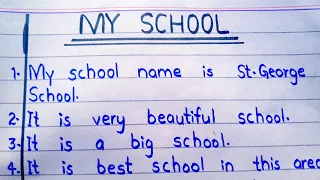 MY SCHOOL
1. My school name is St. George
School.
2. It is very beautiful school.
3. It is a big school.
4. It is best school in this area